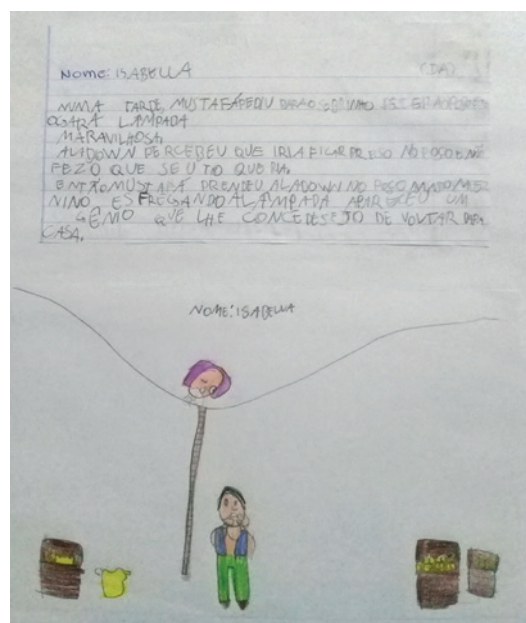 NOME: ISABELLA
NUMA TARDE, MUSTAFÁ PEDIU PARA O SOBRINHO
LÂMPADA
MARAVILHOSA.
ALADOWN PERCEBEU QUE IRIA FICAR PRESO NO POSO E NÃO
FEZ O QUE SEU TIO QUERIA.
ENTÃO MUSTAFÁ PRENDEU ALADOWN NO POSO
NINO, ESFREGANDO A LÂMPADA APARECEU UM
GÊNIO QUE LHE CONCEDESEJO DE VOLTAR PARA
CASA.
NOME: ISABELLA